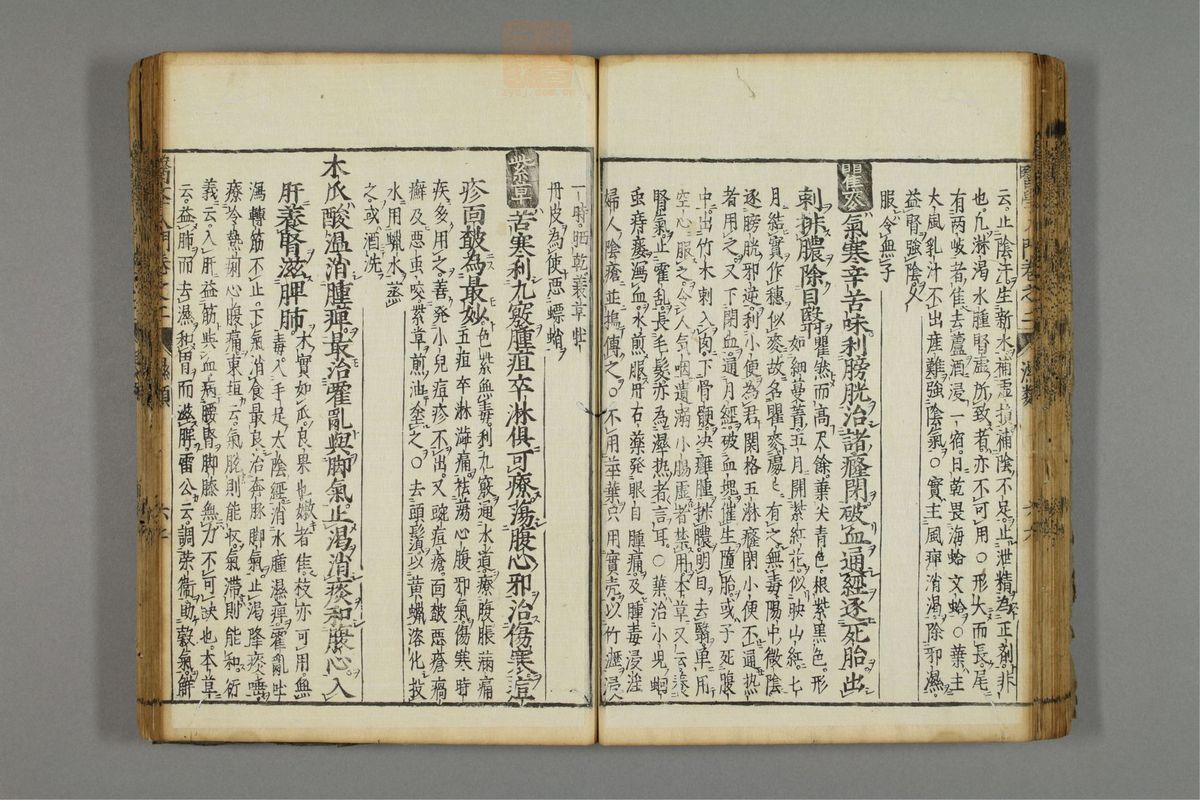 云止陰汗生新水補虛損補陰不足止泄精為正劑非
也凡淋渴水腫腎虛所致者亦不可用○形大而長尾
有兩岐者佳去蘆酒浸一宿日乾畏海蛤文蛤○葉主
大風乳汁不出產難強陰氣○實主風痺消渴除邪濕
益腎強陰久
服令無子
瞿麥氣寒辛苦味利膀胱治諸癃閉破血通經逐死胎出
刺排膿除目翳
瞿然而高尺餘葉尖青色根紫黑色形
如細蔓菁五月開紫紅花似映山紅七
月結實作穗似麥故名瞿麥處處有之無毒陽中微陰
逐膀胱邪逆利小便為君関格五淋癃閉小便不通熱
者用之又下閉血通月經破血塊催生墮胎或子死腹
中出竹木刺入肉下骨鯁决癰腫排膿明目去翳單用
空心服之令人氣咽遺溺小腸虛者禁用本草又云養
腎氣止霍乱長毛髮亦為濕热者言耳○葉治小兒蛔
虫痔瘻瀉血水煎服丹石藥発眼目腫痛及腫毒浸淫
婦人陰瘡並搗傅之○不用莖葉只用實壳以竹瀝浸
一時晒乾蓑草牡
丹皮為使惡螵蛸
紫草苦寒利九竅腫疽卒淋俱可療蕩腹心邪治傷寒痘
疹面皶為最妙
色紫無毒利九竅通水道療腹脹滿痛
五疸卒淋澁痛祛蕩心腹邪氣傷寒時
疾多用之善発小兒痘疹不出又豌痘瘡面皶惡瘡瘑
癬及惡虫咬紫草煎油塗之○去頭鬚以黃蝋溶化投
水用蝋水蒸
之或酒洗
木瓜酸温消腫痺最治霍亂與脚氣止渴消痰和腹心入
肝養腎滋脾肺
木實如瓜良果也嫩者佳枝亦可用無
毒入手足太陰經消水腫濕痺霍亂吐
瀉轉筋不止下氣消食最良治奔豚脚氣止渴降痰唾
療冷熱痢心腹痛東垣云氣脫則能収氣滯則能和衍
義云入肝益筋與血病腰腎脚膝無力不可缺也本草
云益肺而去濕和胃而滋脾雷公云調荣衛助穀氣觧